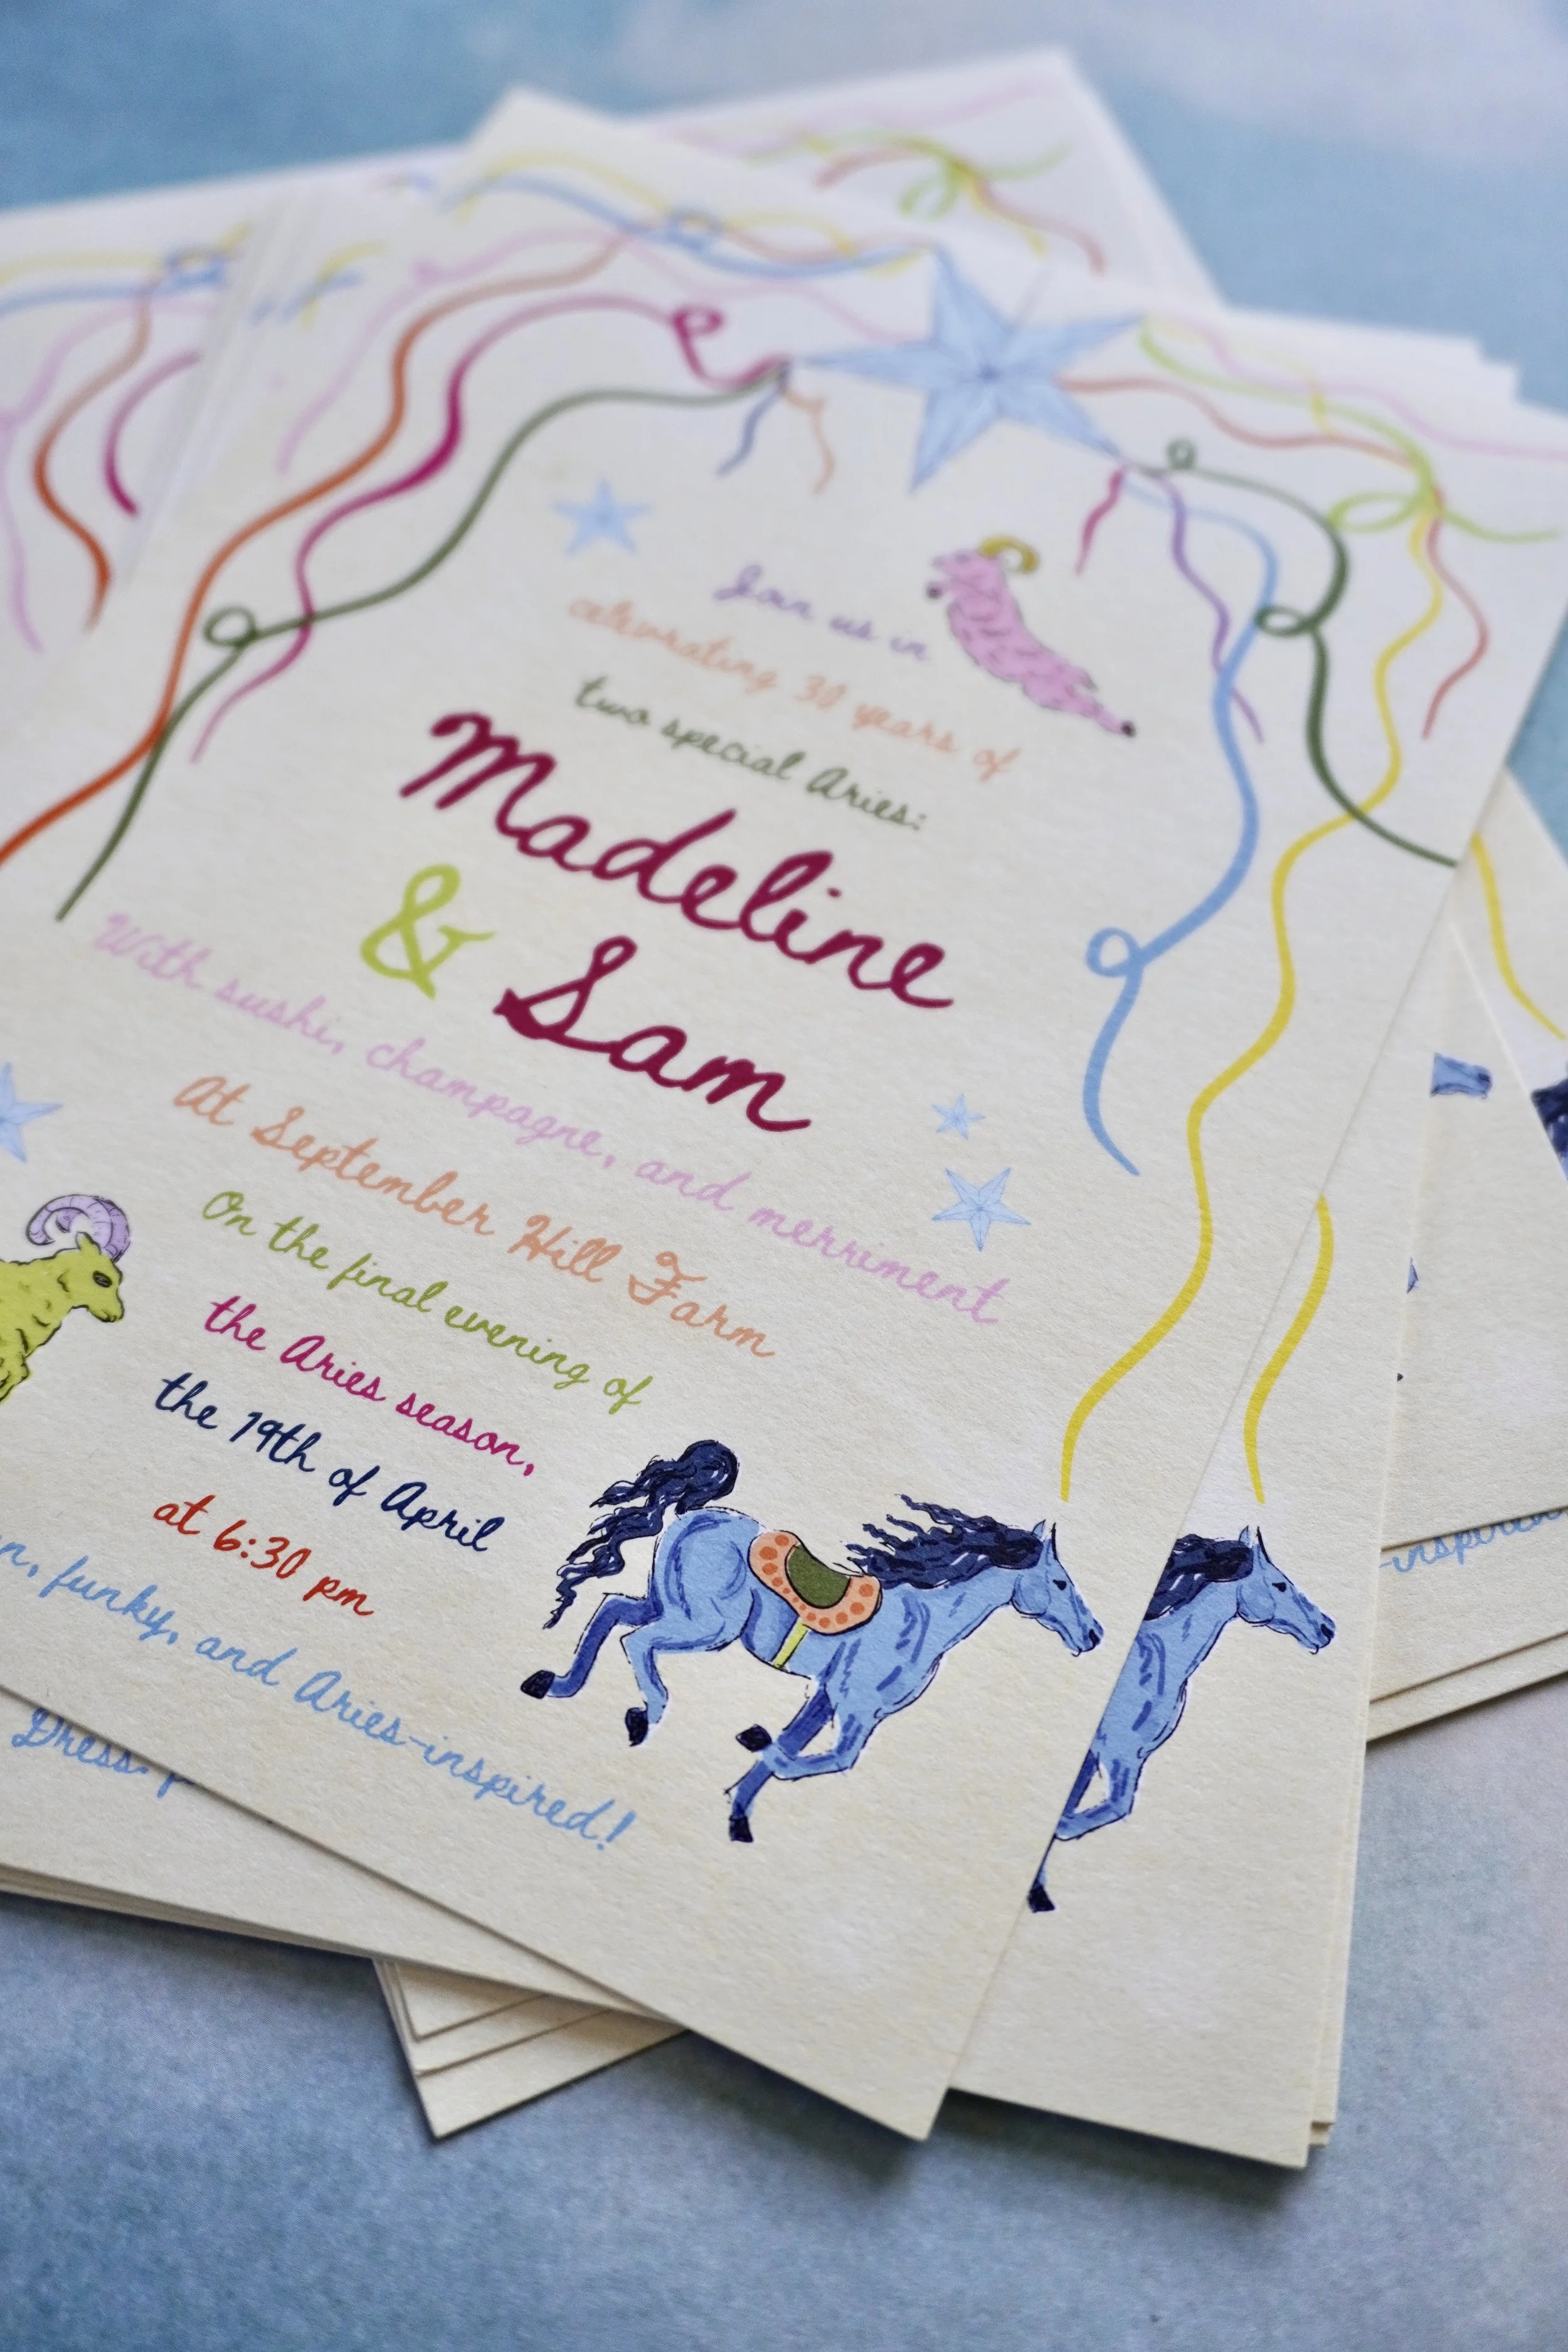 Join us in
celebrating 30 years of
two special Aries:
Madeline
& Sam
With sushi, champagne, and merriment
At September Hill Farm
On the final evening of
the Aries season,
the 19th of April
at 6:30 pm
funky, and Aries-inspired!
Dress:
-inspired